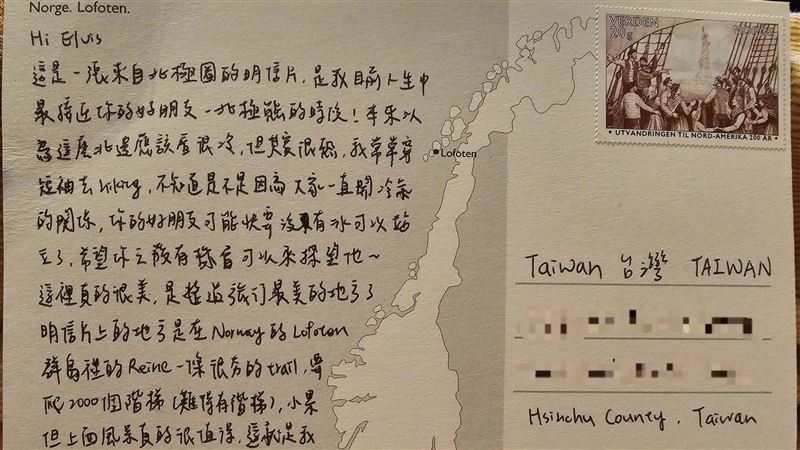 Norge. Lofoten.
Hi Elvis
這是一張來自北極圈的明信片，是我目前人生中
最接近你的好朋友－北極熊的時候！本來以
為這麼北邊應該會很冷，但其實很熱，我常常穿
短袖去 hiking，不知道是不是因為大家一直開冷氣
的關係，你的好朋友可能快要沒有冰可以站
立了，希望你之後有機會可以來探望他～
這裡真的很美，是挪威我們最美的地方了
明信片上的地方是在 Norway 的 Lofoten
群島裡的 Reine 一條很夯的 trail，要
爬2000個階梯(難得有階梯)，小累
但上面風景真的很值得，這就是我
Lofoten
VERDEN
20g
NORGE
• UTVANDRINGEN TIL NORD-AMERIKA 200 ÅR •
Taiwan 台灣 TAIWAN
Hsinchu County, Taiwan